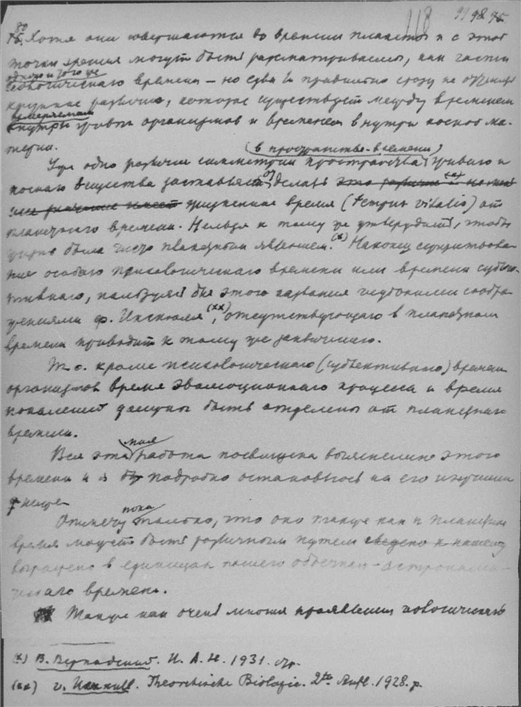 118
Хотя они совершаются во времени планеты и с этой
точки зрения могут быть рассматриваемы, как части
одного и того же
геологического времени – но едва ли правильно сразу не
крупное различие, которое существует между временем
внутри организмов и временем внутри косной ма-
терии.
(в пространстве-времени)
Уже одно различие симметрии пространства живого и
косного вещества заставляет отделять это различие
жизненное время (tempus vitalis) от
планетного времени. Нельзя к тому же утверждать, чтобы
жизнь была чисто планетным явлением. (x) Наконец существова-
ние особого психологического времени или времени субъек-
тивного, пользуясь для этого названия глубокими сообра-
жениями ф. Икскюля (xx), отсутствующего в планетном
времени приводит к тому же заключению.
Т. о. кроме психологического (субъективного) времени
организмов время эволюционного процесса и время
поколений должны быть отделены от планетного
времени.
моя
Вся эта работа посвящена выяснению этого
времени и я подробно остановлюсь на его изучении
ниже.
пока
Отмечу только, что оно также как и планетное
время может быть различным путем сведено к нашему
выражено в единицах нашего обычного – астрономи-
ческого времени.
Также как очень многие проявления
(x) В. Вернадский. И. А. Н. 1931. стр.
(xx) v. Uexkull. Theoretische Biologie. 2te Aufl. 1928. p.